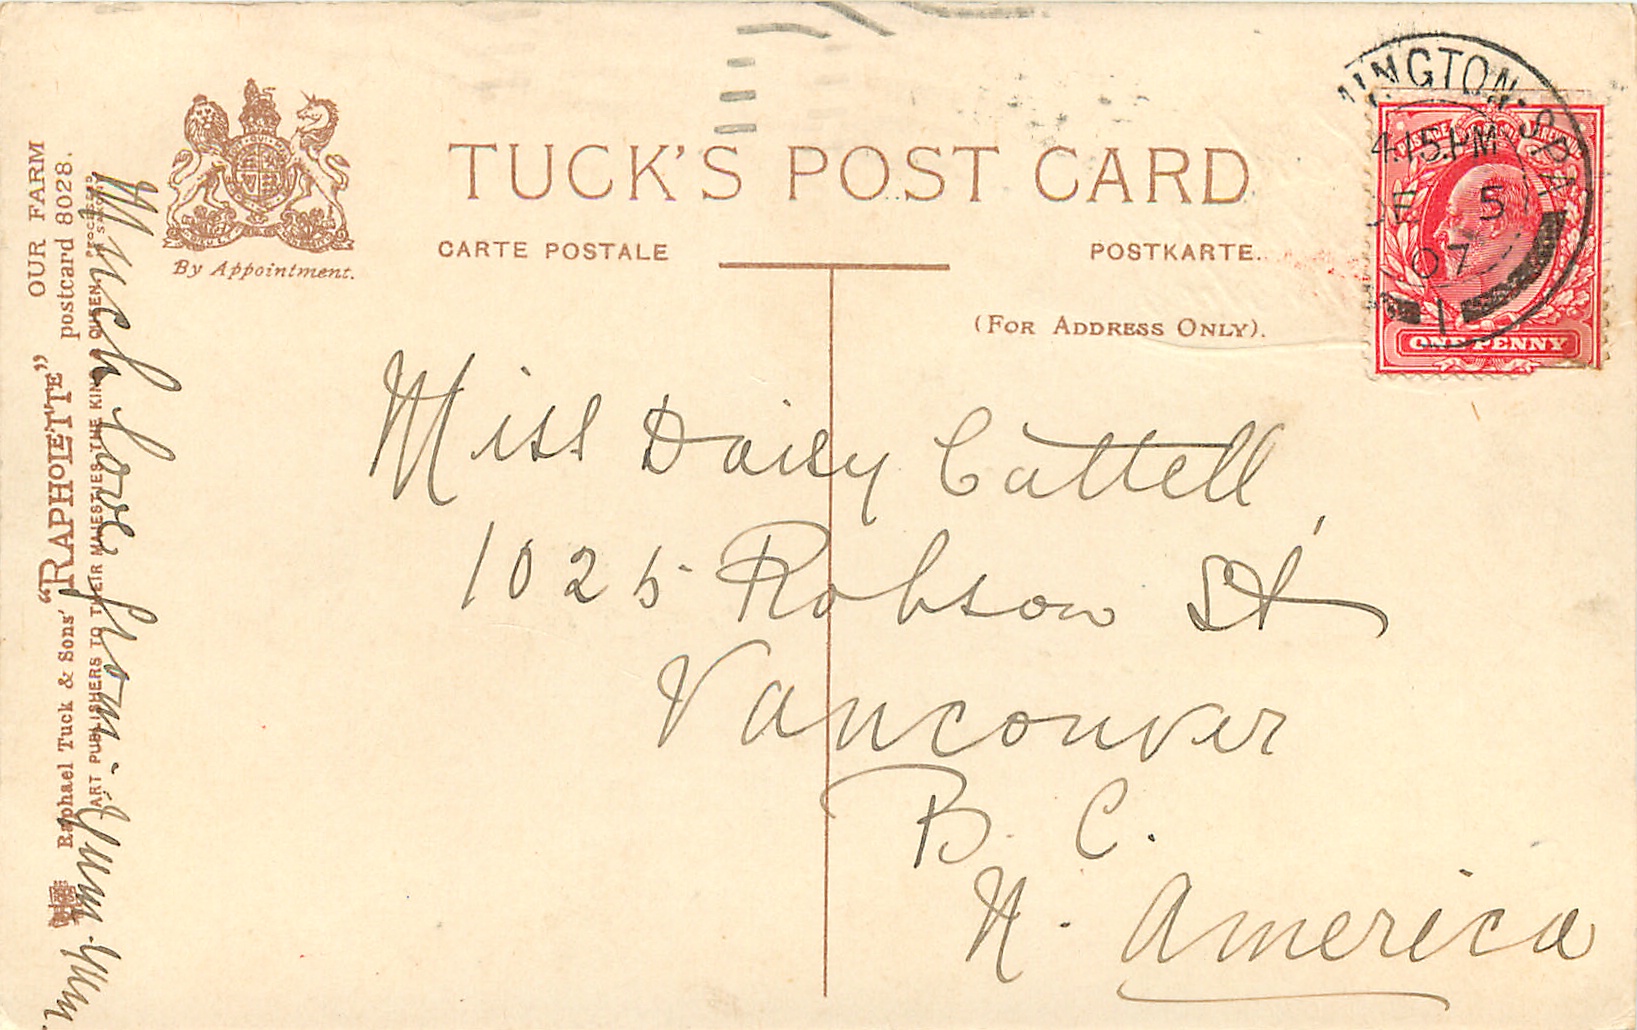 TUCK'S POST CARD
CARTE POSTALE
POSTKARTE.
(FOR ADDRESS ONLY).
By Appointment.
MINGTON·SPA
4.15.PM
5
07
1
ONE PENNY
Miss Daisy Cattell,
1025 Robson St
Vancouver
B. C.
N. America
OUR FARM
postcard 8028.
Raphael Tuck & Sons' “RAPHOLETTE”
ART PUBLISHERS TO THEIR MAJESTIES THE KING & QUEEN.
PROCESSED
Much love from. Yum. Yum